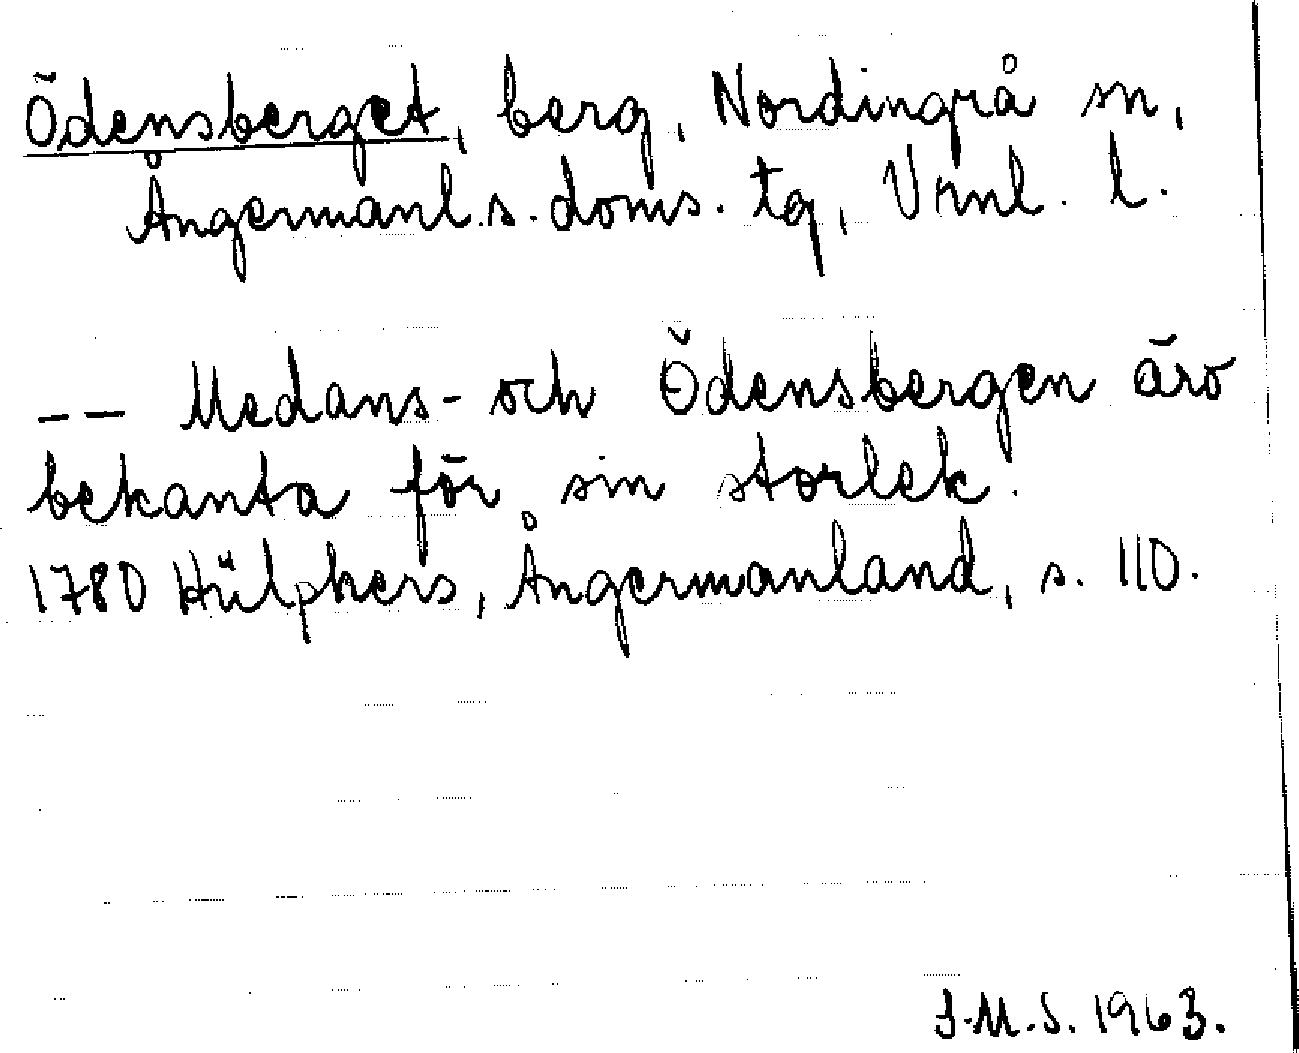 Ödensberget, berg, Nordingrå sn,
Ångermanl. s. doms. tg, Vrnl. l.
-- Medans- och Ödensbergen äro
bekanta för sin storlek.
1780 Hülphers, Ångermanland, s. 110.
I.M.S. 1963.